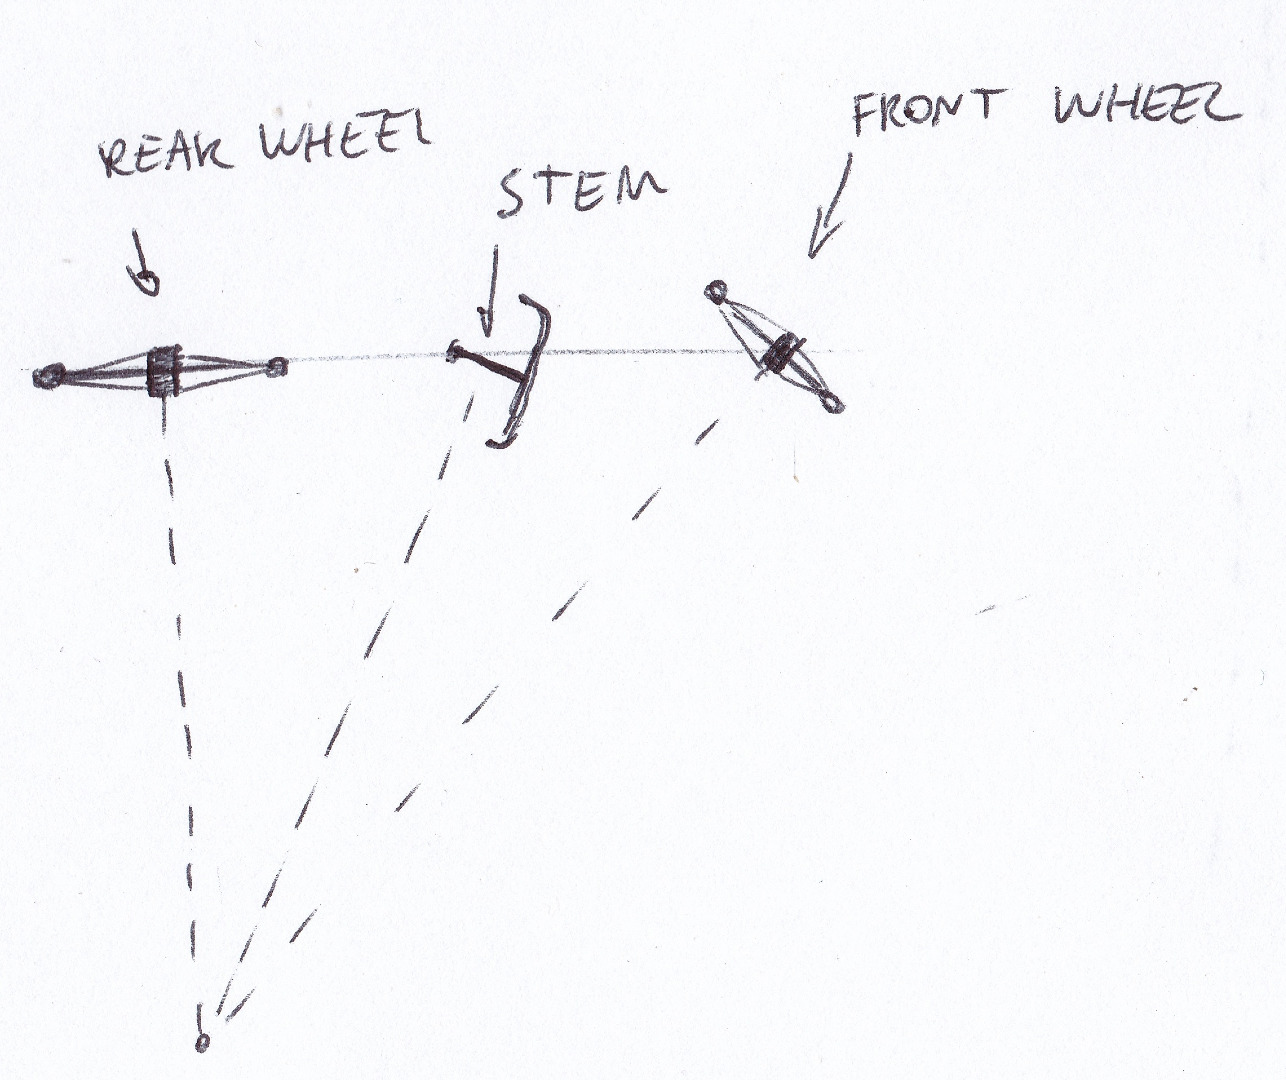 REAR WHEEL
STEM
FRONT WHEEL